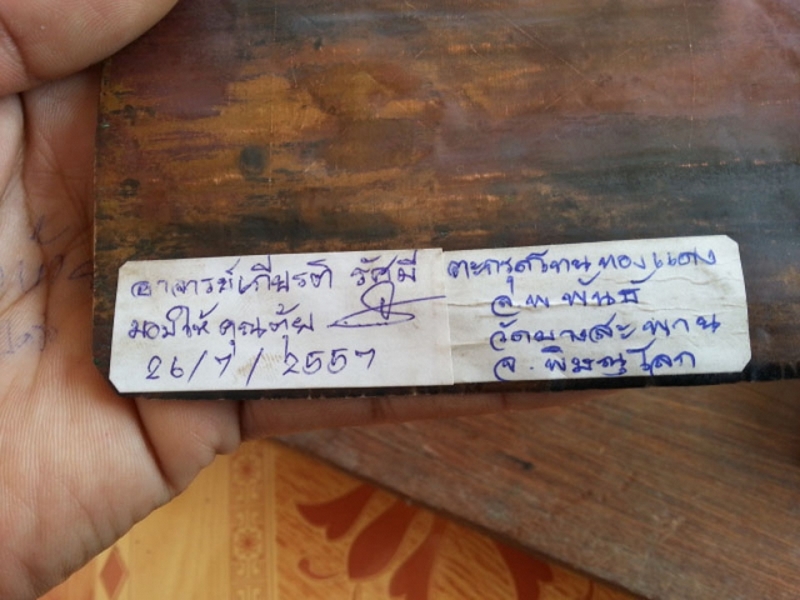 อาจารย์เกียรติ รัศมี
มอบให้ คุณตุ้ย
26/7/2557
ตะกรุดโทน ทองแดง
อ.พ พันธ์
วัดบางสะพาน
จ.พิษณุโลก